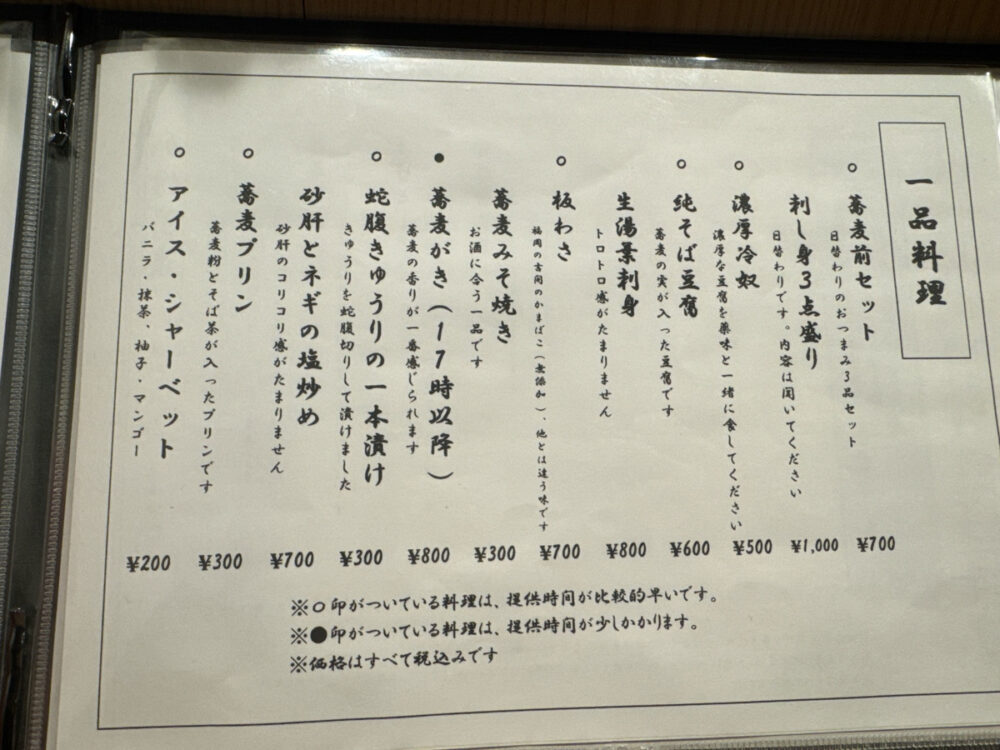 一品料理
○ 蕎麦前セット
日替わりのおつまみ3品セット
¥700
刺し身3点盛り
日替わりです。内容は聞いてください
¥1,000
○ 濃厚冷奴
濃厚な豆腐を薬味と一緒に食してください
¥500
○ 純そば豆腐
蕎麦の実が入った豆腐です
¥600
生湯葉刺身
トロトロ感がたまりません
¥800
○ 板わさ
福岡の吉開のかまぼこ(無添加)、他とは違う味です
¥700
蕎麦みそ焼き
お酒に合う一品です
¥300
● 蕎麦がき(17時以降)
蕎麦の香りが一番感じられます
¥800
○ 蛇腹きゅうりの一本漬け
きゅうりを蛇腹切りして漬けました
¥300
砂肝とネギの塩炒め
砂肝のコリコリ感がたまりません
¥700
○ 蕎麦プリン
蕎麦粉とそば茶が入ったプリンです
¥300
○ アイス・シャーベット
バニラ・抹茶、柚子・マンゴー
¥200
※○印がついている料理は、提供時間が比較的早いです。
※●印がついている料理は、提供時間が少しかかります。
※価格はすべて税込みです